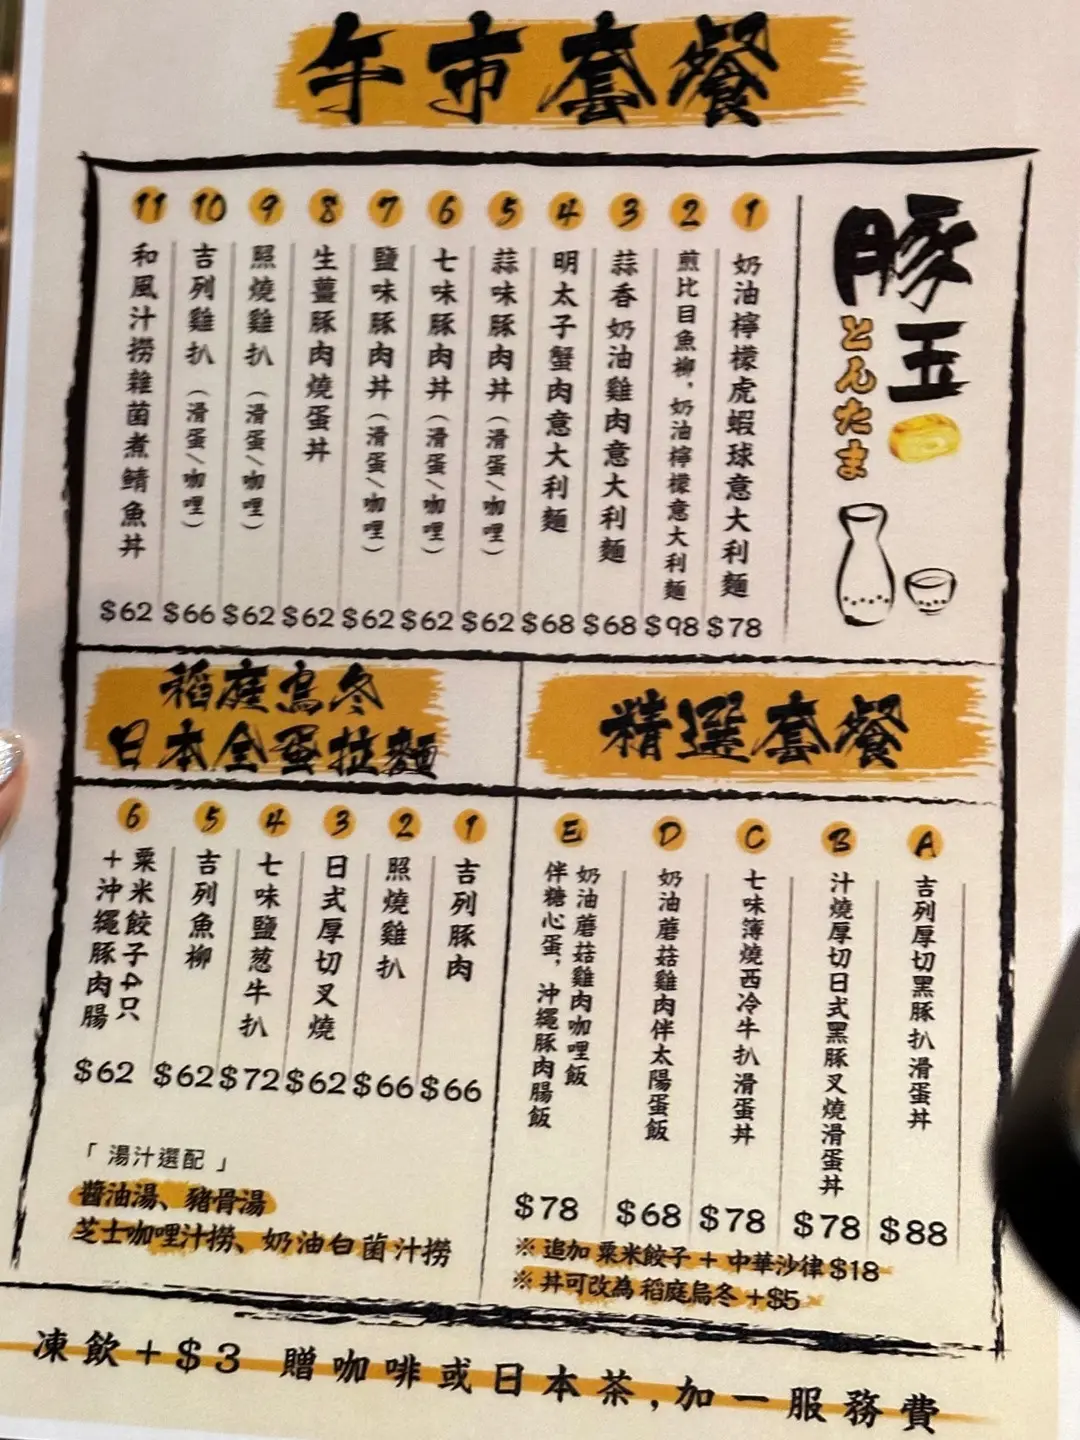 午市套餐
豚玉
とんたま
1 奶油檸檬虎蝦球意大利麵 $78
2 煎比目魚柳，奶油檸檬意大利麵 $98
3 蒜香奶油雞肉意大利麵 $68
4 明太子蟹肉意大利麵 $68
5 蒜味豚肉丼（滑蛋/咖哩） $62
6 七味豚肉丼（滑蛋/咖哩） $62
7 鹽味豚肉丼（滑蛋/咖哩） $62
8 生薑豚肉燒蛋丼 $62
9 照燒雞扒（滑蛋/咖哩） $62
10 吉列雞扒（滑蛋/咖哩） $66
11 和風汁撈雜菌煮鯖魚丼 $62
精選套餐
A 吉列厚切黑豚扒滑蛋丼 $88
B 汁燒厚切日式黑豚叉燒滑蛋丼 $78
C 七味薄燒西冷牛扒滑蛋丼 $78
D 奶油蘑菇雞肉伴太陽蛋飯 $68
E 奶油蘑菇雞肉咖哩飯
伴糖心蛋，沖繩豚肉腸飯 $78
※ 追加 粟米餃子 + 中華沙律 $18
※ 丼可改為 稻庭烏冬 +$5
稻庭烏冬
日本全蛋拉麵
1 吉列豚肉 $66
2 照燒雞扒 $66
3 日式厚切叉燒 $62
4 七味鹽葱牛扒 $72
5 吉列魚柳 $62
6 粟米餃子4只
+沖繩豚肉腸 $62
「 湯汁選配 」
醬油湯、豬骨湯
芝士咖哩汁撈、奶油白菌汁撈
凍飲+$3 贈咖啡或日本茶,加一服務費